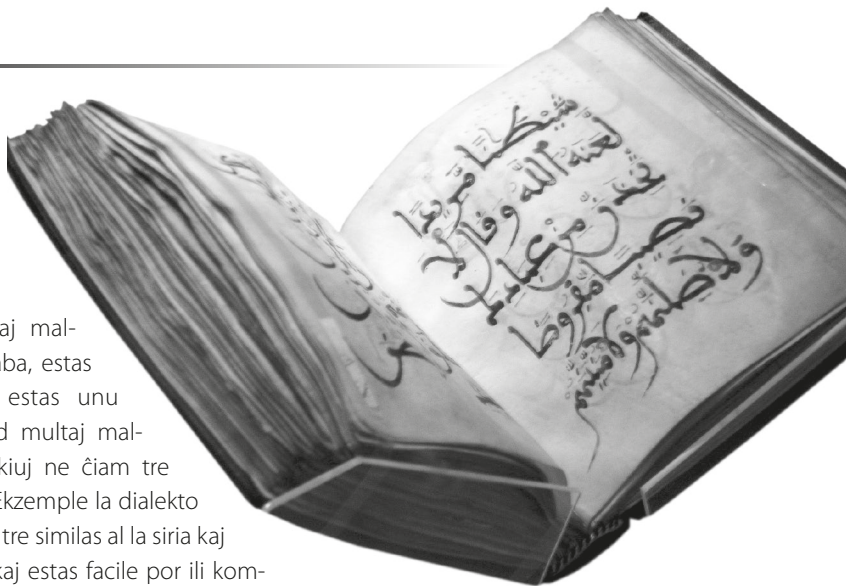 aj mal-
aba, estas
estas unu
d multaj mal-
kiuj ne ĉiam tre
Ekzemple la dialekto
tre similas al la siria kaj
kaj estas facile por ili kom-
شيطنا مريدا
لعنه الله وقال لا
تخذن من عبادك
نصيبا مفروضا